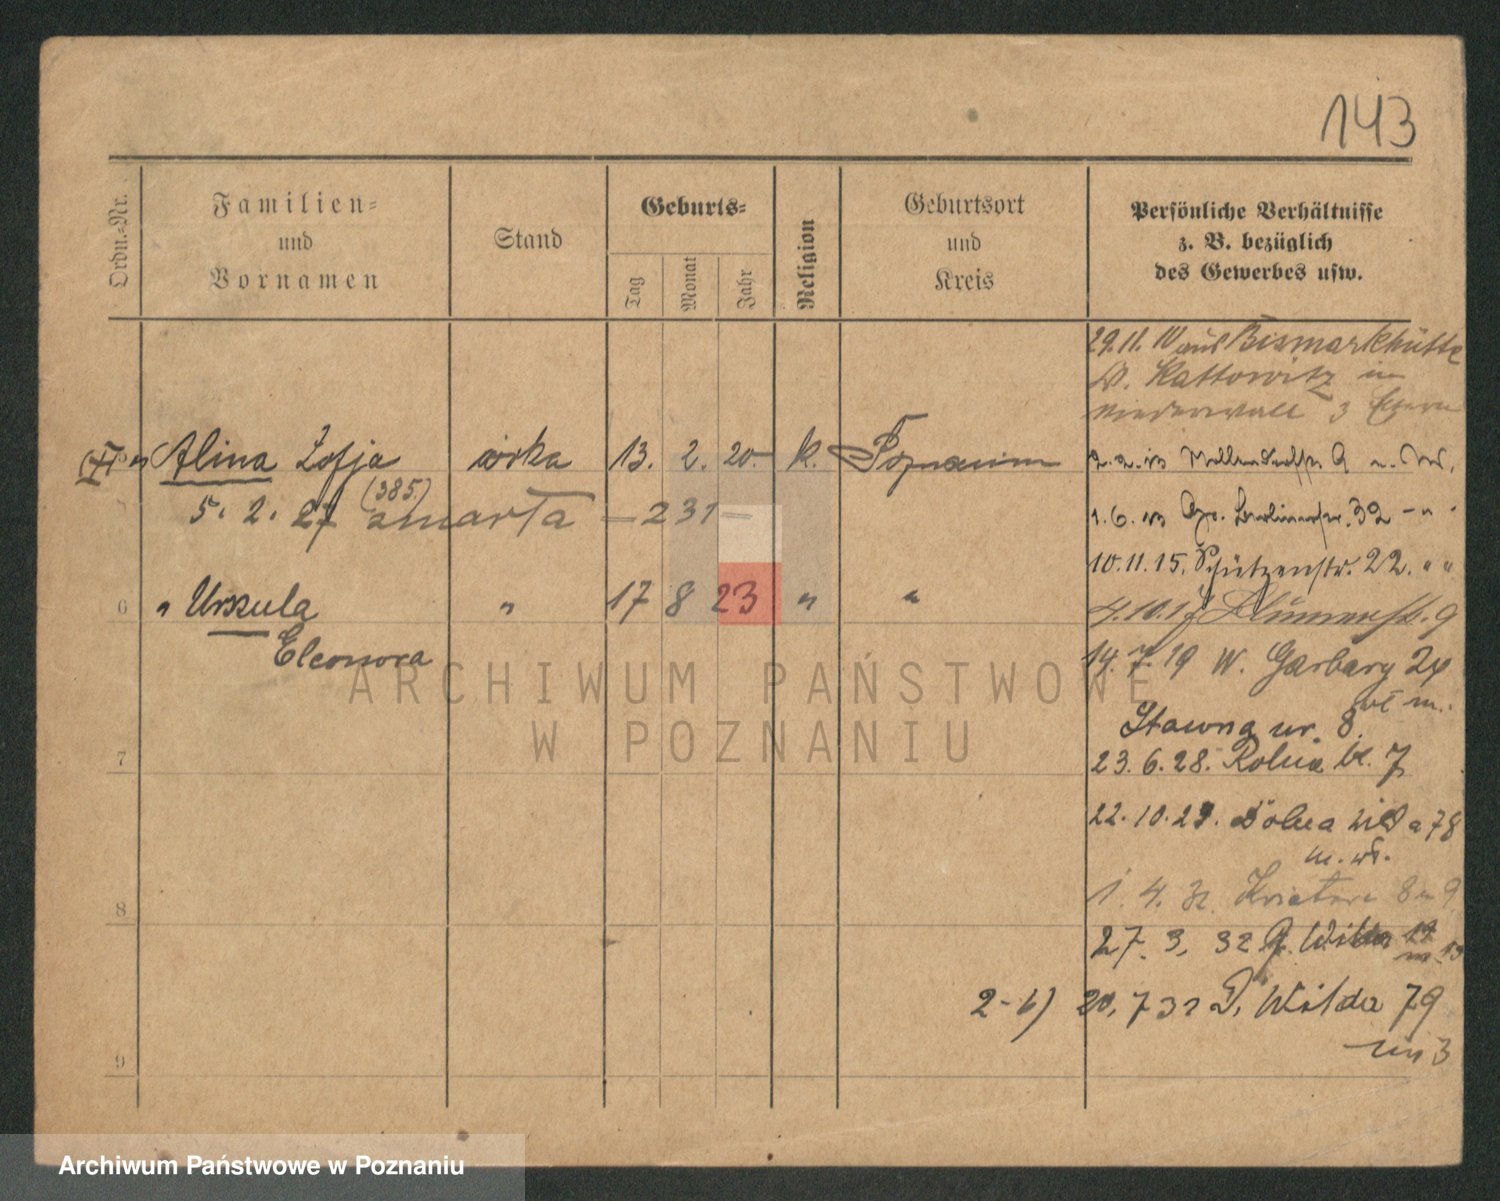 143
Ordn.-Nr.
Familien-
und
Vornamen
Stand
Geburts-
Tag
Monat
Jahr
Religion
Geburtsort
und
Kreis
Persönliche Verhältnisse
z. B. bezüglich
des Gewerbes usw.
29.11.10 aus Bismarkhütte
Kattowitz in
Niederwall 3
" Alina Zofja córka 13. 2. 20. k. Poznań
5. 2. 27 (385) zmarła – 231 –
1.6.13 Gr. Berlinerstr. 32 – " –
10.11.15. Schützenstr. 22. " "
6 " Urszula " 17 8 23 " "
Eleonora
4.10.17 Blumenstr. 9
14.7.19 W. Garbary 24
Stawna nr. 8.
7 23.6.28. Rolna 7
22.10.29. Dolna Wilda 78
m.
8 1. 4. 9
27. 3. 32 G. Wilda
2-6) 20. 7 32 D. Wilda 79
m 3
9
ARCHIWUM PAŃSTWOWE
W POZNANIU
Archiwum Państwowe w Poznaniu